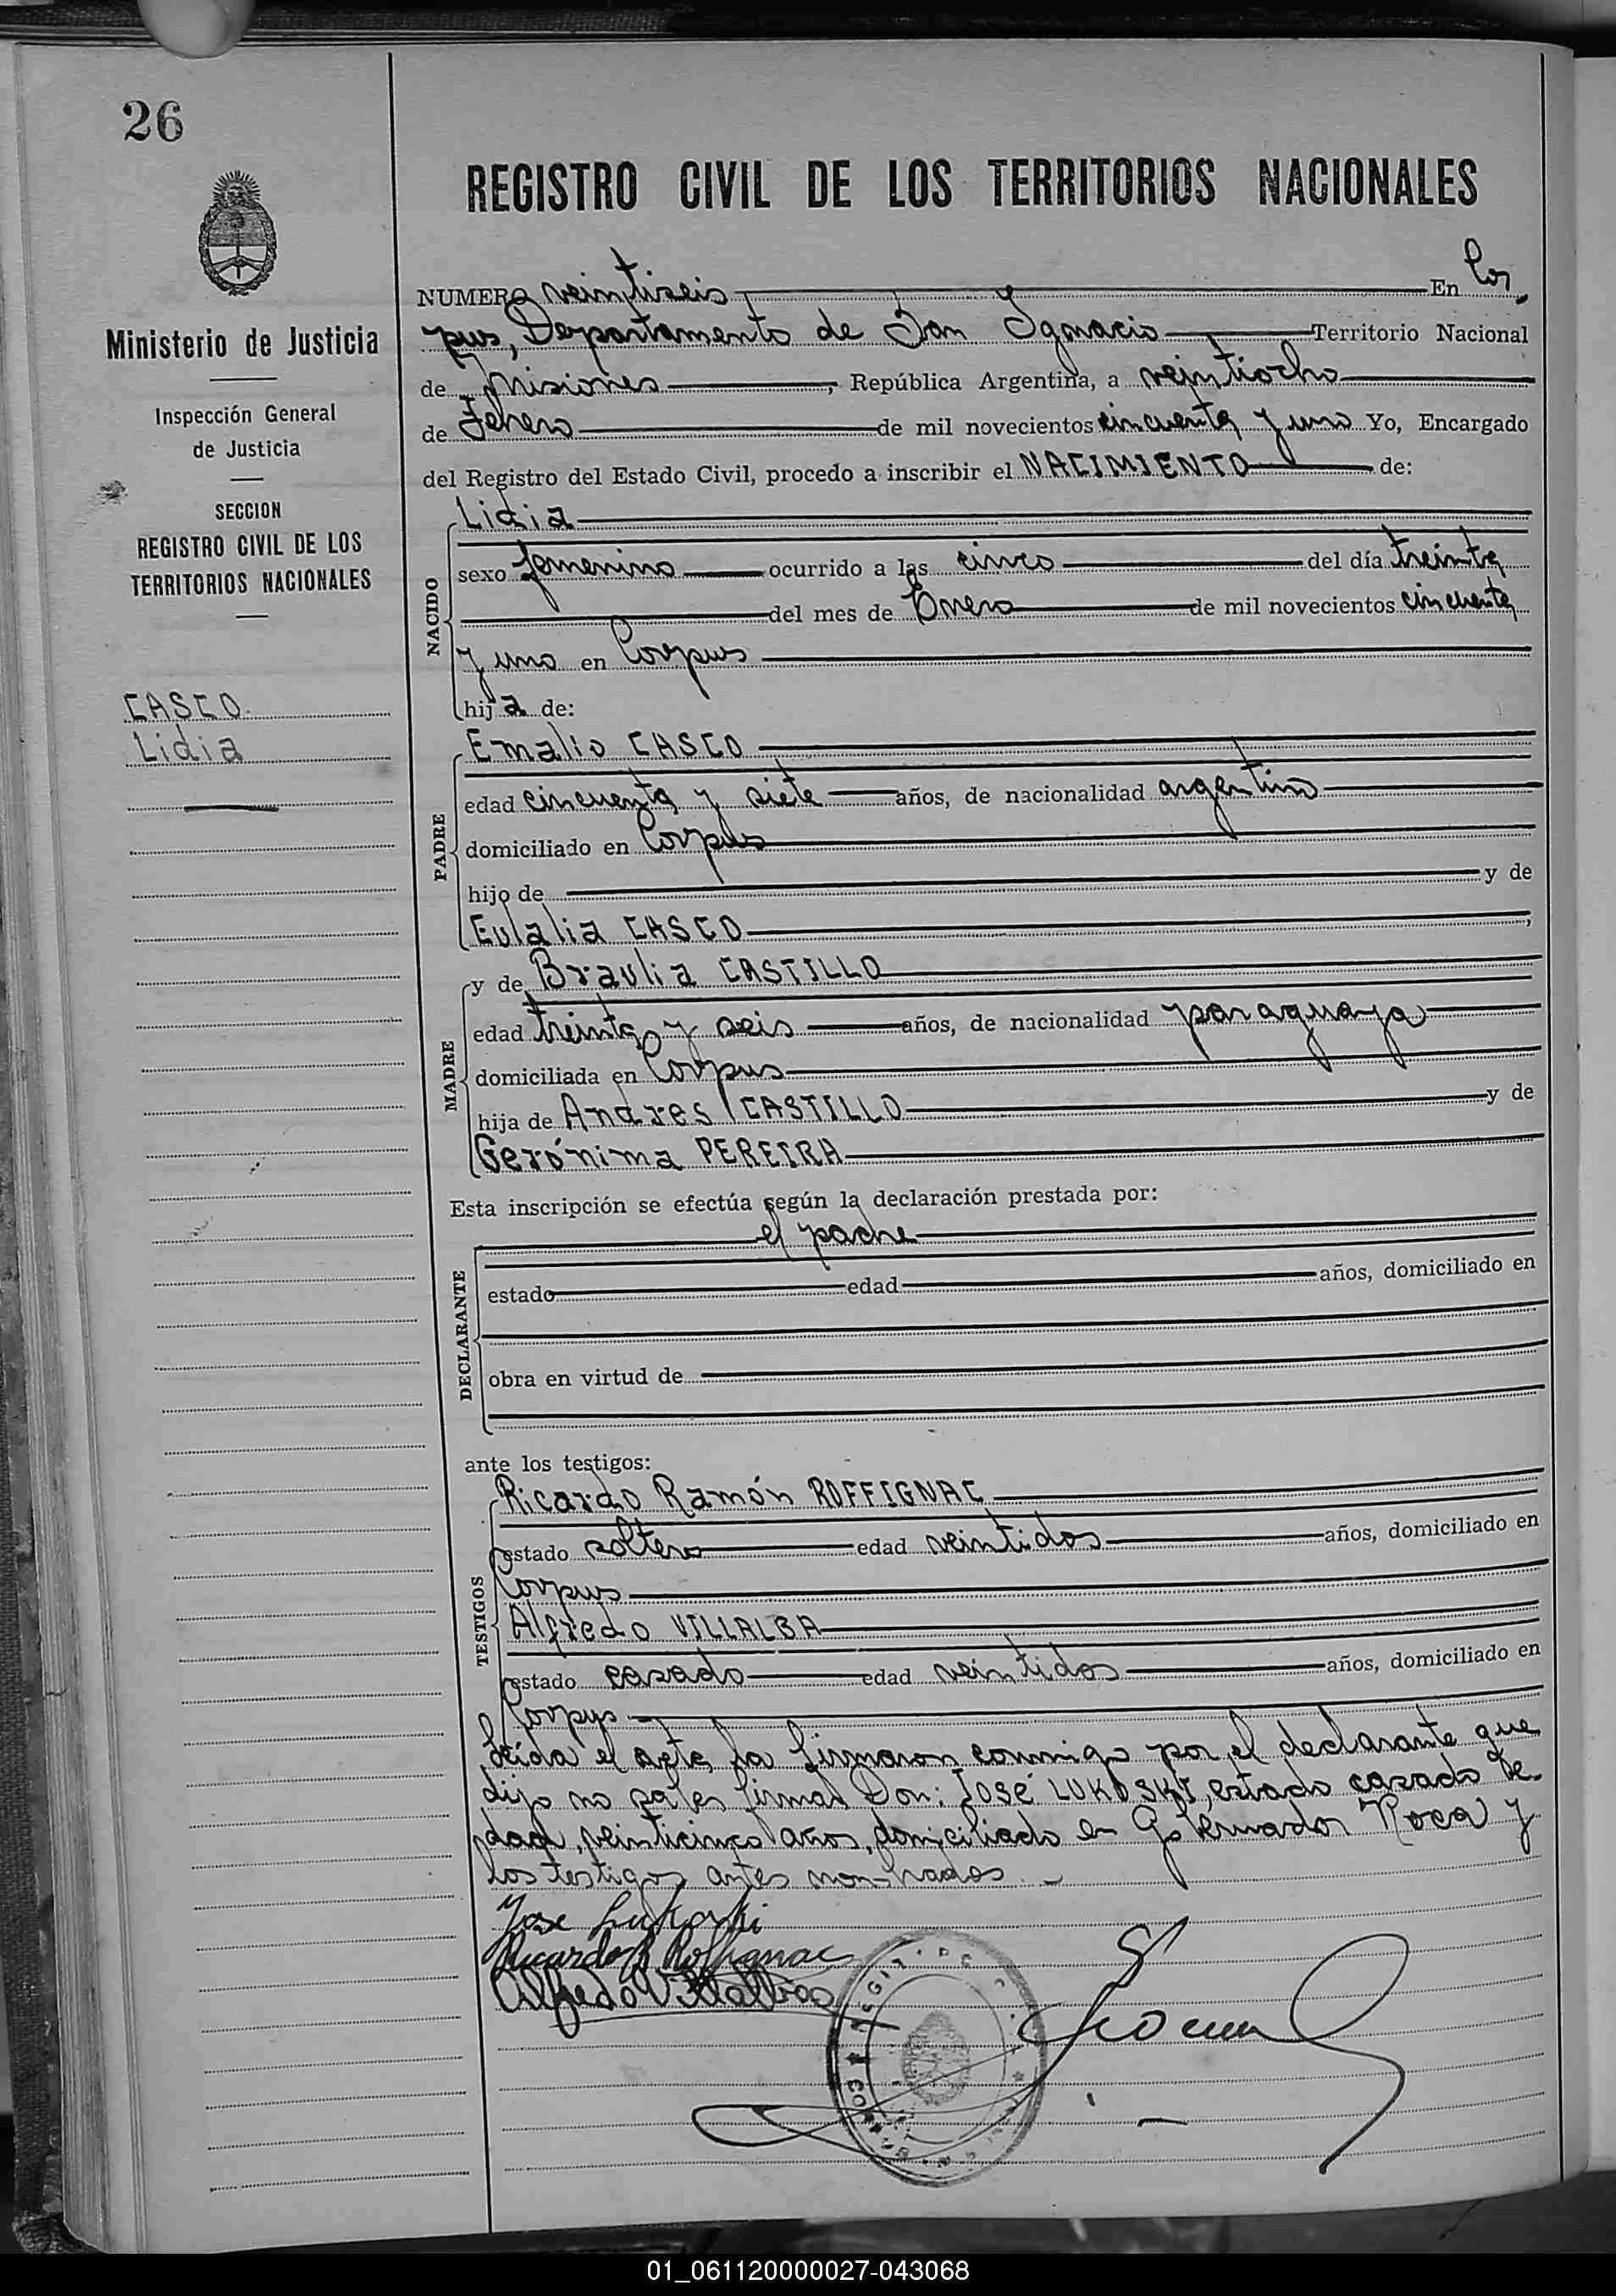 26
Ministerio de Justicia
Inspección General
de Justicia
SECCION
REGISTRO CIVIL DE LOS
TERRITORIOS NACIONALES
CASCO
Lidia
REGISTRO CIVIL DE LOS TERRITORIOS NACIONALES
NUMERO veintiseis En Cor
pus, Departamento de San Ignacio Territorio Nacional
de Misiones, República Argentina, a veintiocho
de Febrero de mil novecientos cincuenta y uno Yo, Encargado
del Registro del Estado Civil, procedo a inscribir el NACIMIENTO de:
NACIDO
Lidia
sexo femenino ocurrido a las cinco del día treinta
del mes de Enero de mil novecientos cincuenta
y uno en Corpus
hija de:
PADRE
Emalio CASCO
edad cincuenta y siete años, de nacionalidad argentino
domiciliado en Corpus
hijo de y de
Eulalia CASCO,
MADRE
y de Braulia CASTILLO
edad treinta y seis años, de nacionalidad paraguaya
domiciliada en Corpus
hija de Andres CASTILLO y de
Gerónima PEREIRA
Esta inscripción se efectúa según la declaración prestada por:
DECLARANTE
el padre
estado edad años, domiciliado en
obra en virtud de
ante los testigos:
TESTIGOS
Ricardo Ramón ROFFIGNAC
estado soltero edad veintidos años, domiciliado en
Corpus
Alfredo VILLALBA
estado casado edad veintidos años, domiciliado en
Corpus
Leida el acta la firmaron conmigo por el declarante que
dijo no saber firmar Don: José LUKOSKI, estado casado de e
dad veinticinco años, domiciliado en Gobernador Roca y
los testigos antes nombrados.
Jose Lukoski
Ricardo R Roffignac
Alfredo Villalba
CORPUS
01_061120000027-043068